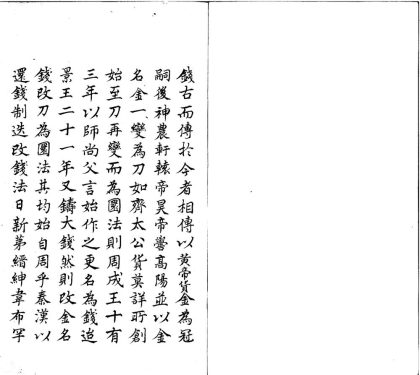 錢古而傳於今者相傳以黃帝貨金為冠
嗣後神農軒轅帝昊帝嚳高陽並以金
名金一變為刀如齊太公貨莫詳所創
始至刀再變而為圜法則周成王十有
三年以師尚父言始作之更名為錢迨
景王二十一年又鑄大錢然則改金名
錢改刀為圜法其均始自周乎秦漢以
還錢制迭改錢法日新第縉紳韋布罕